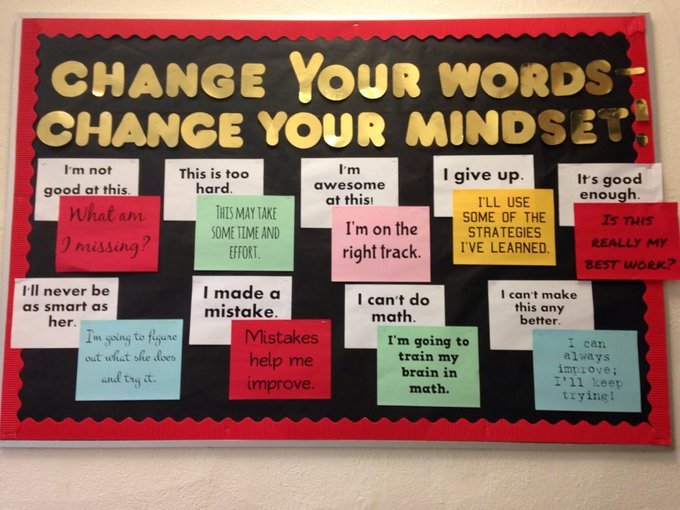 CHANGE YOUR WORDS-
CHANGE YOUR MINDSET!
I'm not
good at this.
What am
I missing?
This is too
hard.
THIS MAY TAKE
SOME TIME AND
EFFORT.
I'm
awesome
at this!
I'm on the
right track.
I give up.
I'LL USE
SOME OF THE
STRATEGIES
I'VE LEARNED.
It's good
enough.
IS THIS
REALLY MY
BEST WORK?
I'll never be
as smart as
her.
I'm going to figure
out what she does
and try it.
I made a
mistake.
Mistakes
help me
improve.
I can't do
math.
I'm going to
train my
brain in
math.
I can't make
this any
better.
I can
always
improve;
I'll keep
trying!